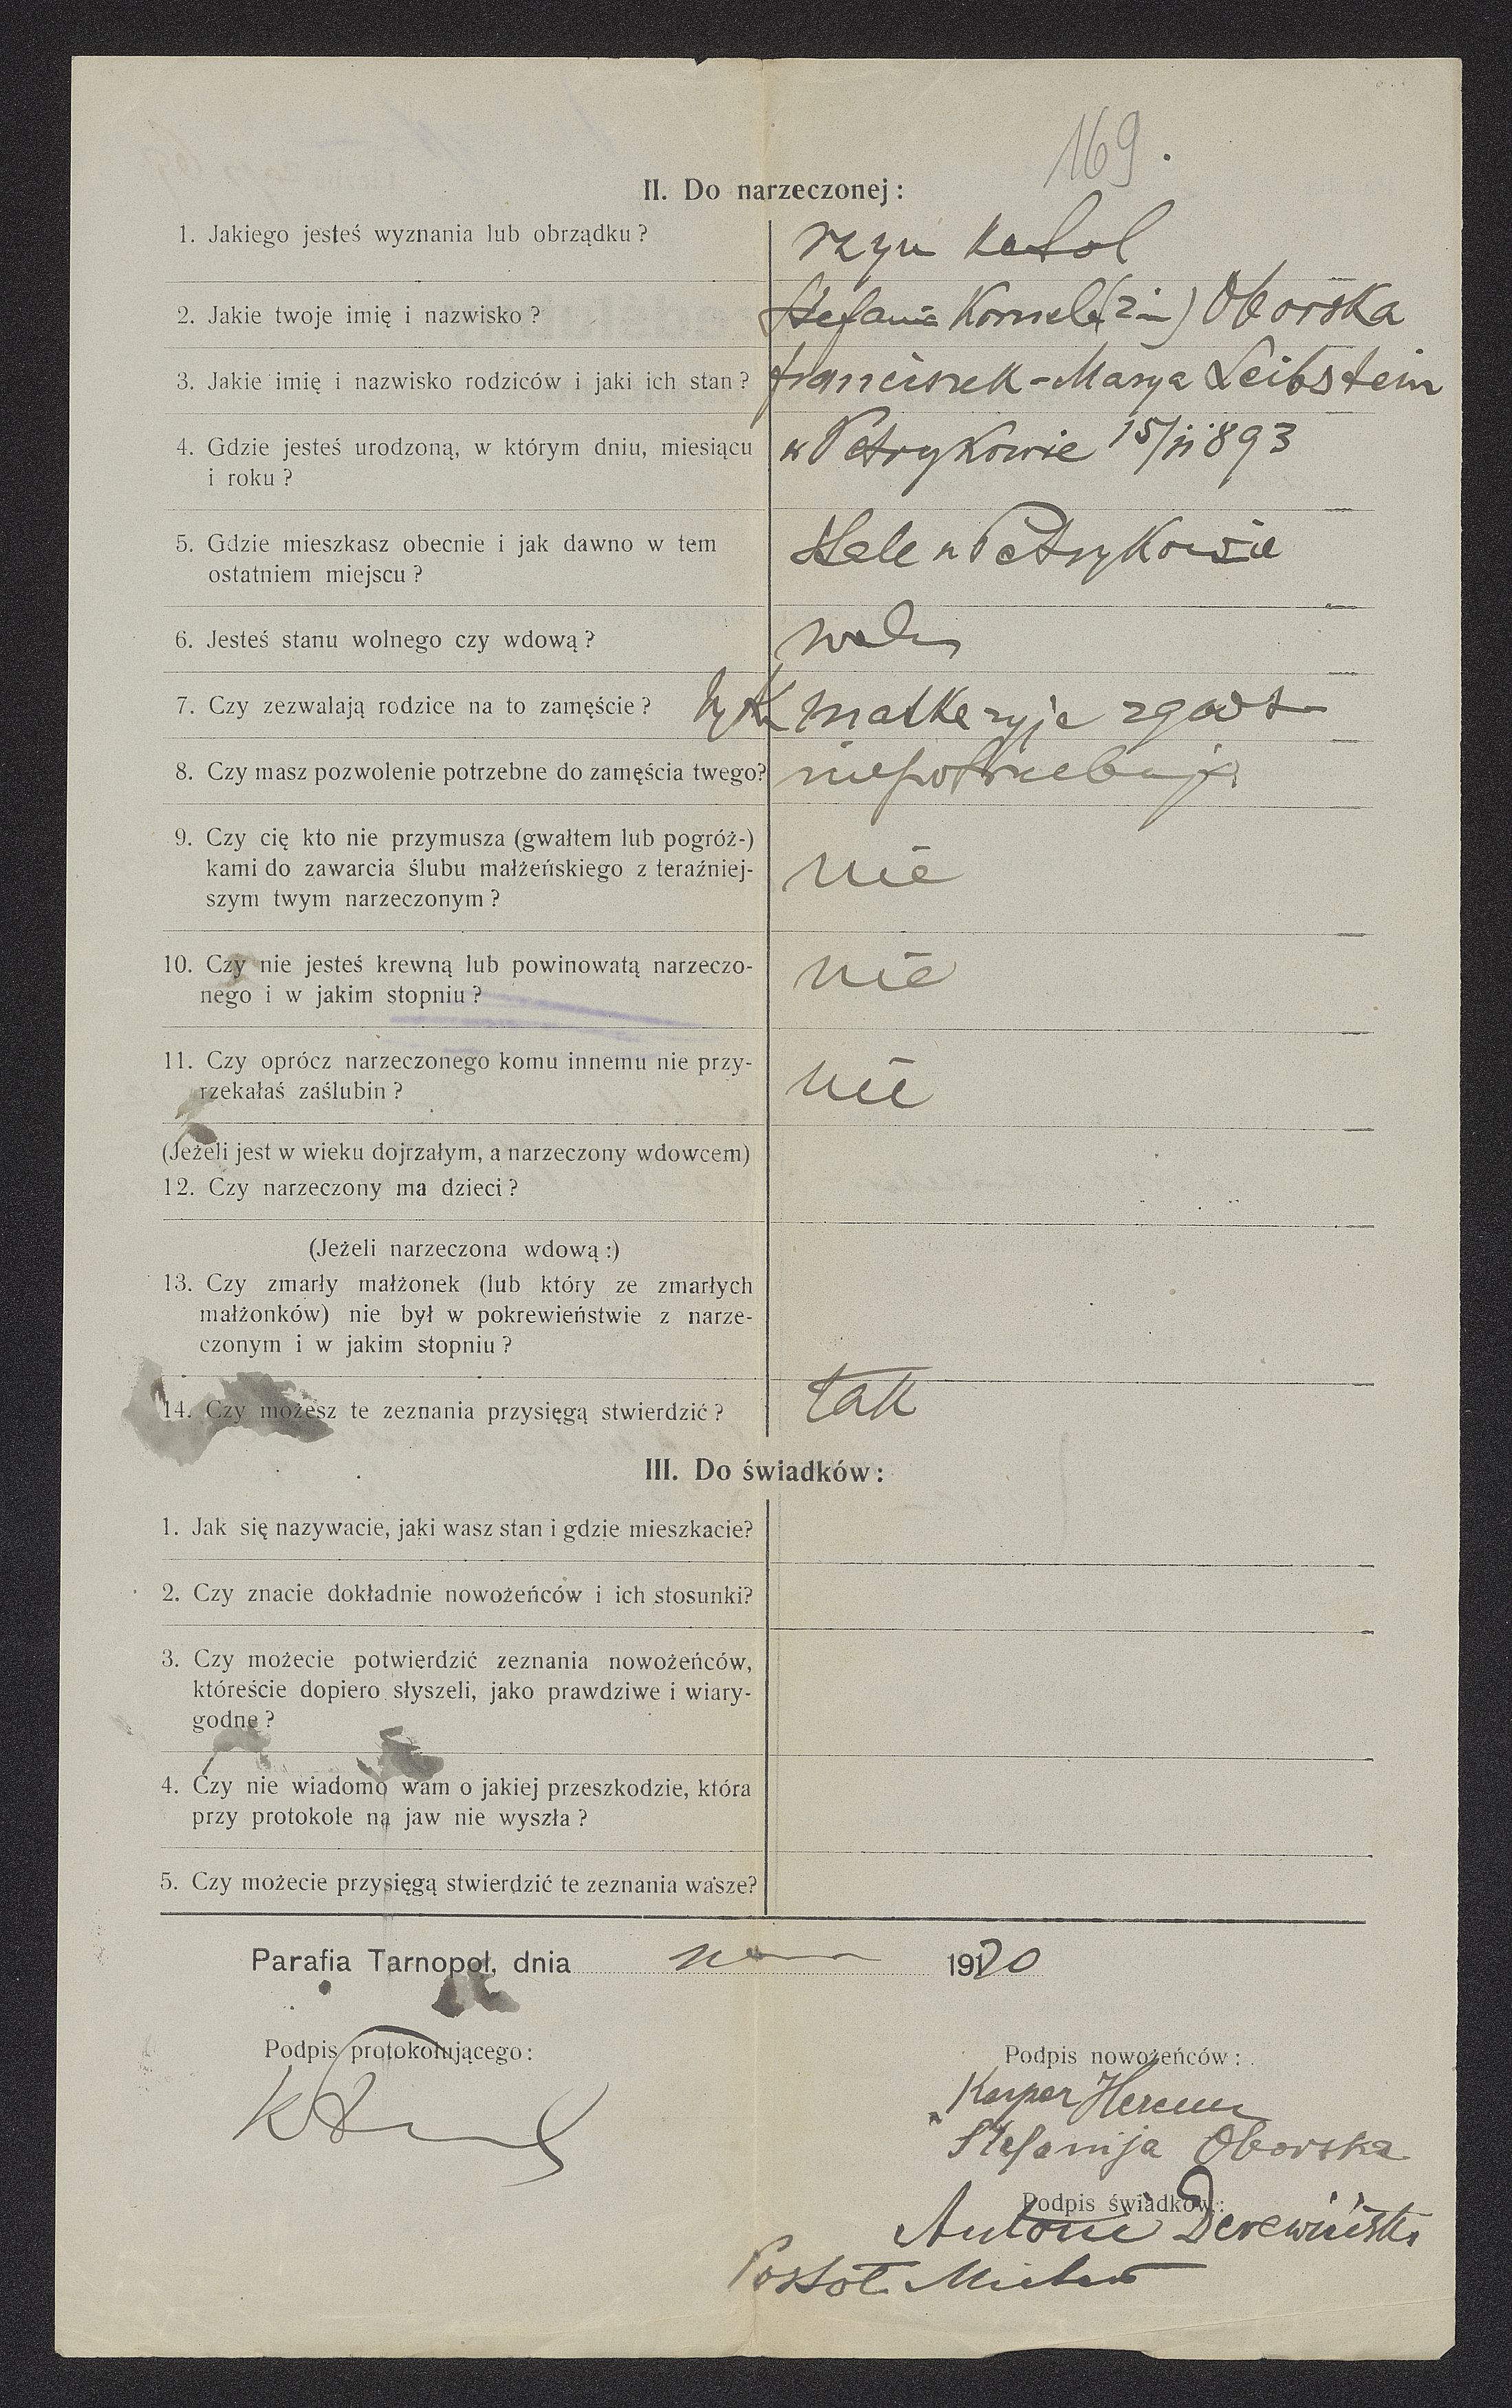 169.
II. Do narzeczonej:
1. Jakiego jesteś wyznania lub obrządku?
rzym katol
2. Jakie twoje imię i nazwisko?
Stefania Kornela (2 im) Oborska
3. Jakie imię i nazwisko rodziców i jaki ich stan?
franciszek - Marya Leibstein
4. Gdzie jesteś urodzoną, w którym dniu, miesiącu
i roku?
w Petrykowie 15/ 893
5. Gdzie mieszkasz obecnie i jak dawno w tem
ostatniem miejscu?
Stale w Petrykowie
6. Jesteś stanu wolnego czy wdową?
wolny
7. Czy zezwalają rodzice na to zamęście?
tylko matka żyje
8. Czy masz pozwolenie potrzebne do zamęścia twego?
niepotrzebuje
9. Czy cię kto nie przymusza (gwałtem lub pogróż-)
kami do zawarcia ślubu małżeńskiego z teraźniej-
szym twym narzeczonym?
nie
10. Czy nie jesteś krewną lub powinowatą narzeczo-
nego i w jakim stopniu?
nie
11. Czy oprócz narzeczonego komu innemu nie przy-
rzekałaś zaślubin?
nie
(Jeżeli jest w wieku dojrzałym, a narzeczony wdowcem)
12. Czy narzeczony ma dzieci?
(Jeżeli narzeczona wdową:)
13. Czy zmarły małżonek (lub który ze zmarłych
małżonków) nie był w pokrewieństwie z narze-
czonym i w jakim stopniu?
14. Czy możesz te zeznania przysięgą stwierdzić?
tak
III. Do świadków:
1. Jak się nazywacie, jaki wasz stan i gdzie mieszkacie?
2. Czy znacie dokładnie nowożeńców i ich stosunki?
3. Czy możecie potwierdzić zeznania nowożeńców,
któreście dopiero słyszeli, jako prawdziwe i wiary-
godne?
4. Czy nie wiadomo wam o jakiej przeszkodzie, która
przy protokole na jaw nie wyszła?
5. Czy możecie przysięgą stwierdzić te zeznania wasze?
Parafia Tarnopol, dnia 1920
Podpis protokołującego:
Podpis nowożeńców:
Kasper
Stefanija Oborska
Podpis świadków:
Antoni Derewiński